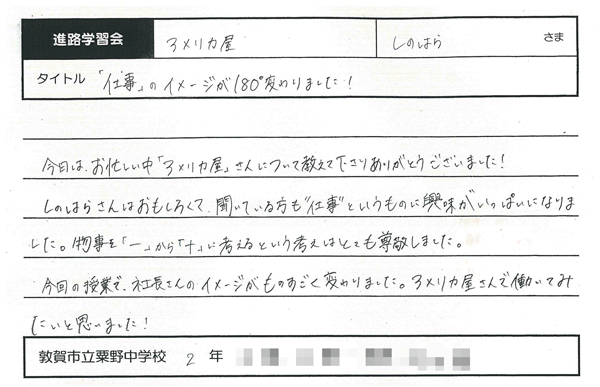 進路学習会 アメリカ屋 しのはら さま
タイトル 「仕事」のイメージが180°変わりました！
今日は、お忙しい中「アメリカ屋」さんについて教えて下さりありがとうございました！
しのはらさんはおもしろくて、聞いている方も"仕事"というものに興味がいっぱいになりま
した。物事を「－」から「＋」に考えるという考えはとても尊敬しました。
今回の授業で、社長さんのイメージがものすごく変わりました。アメリカ屋さんで働いてみ
たいと思いました！
敦賀市立粟野中学校 2 年